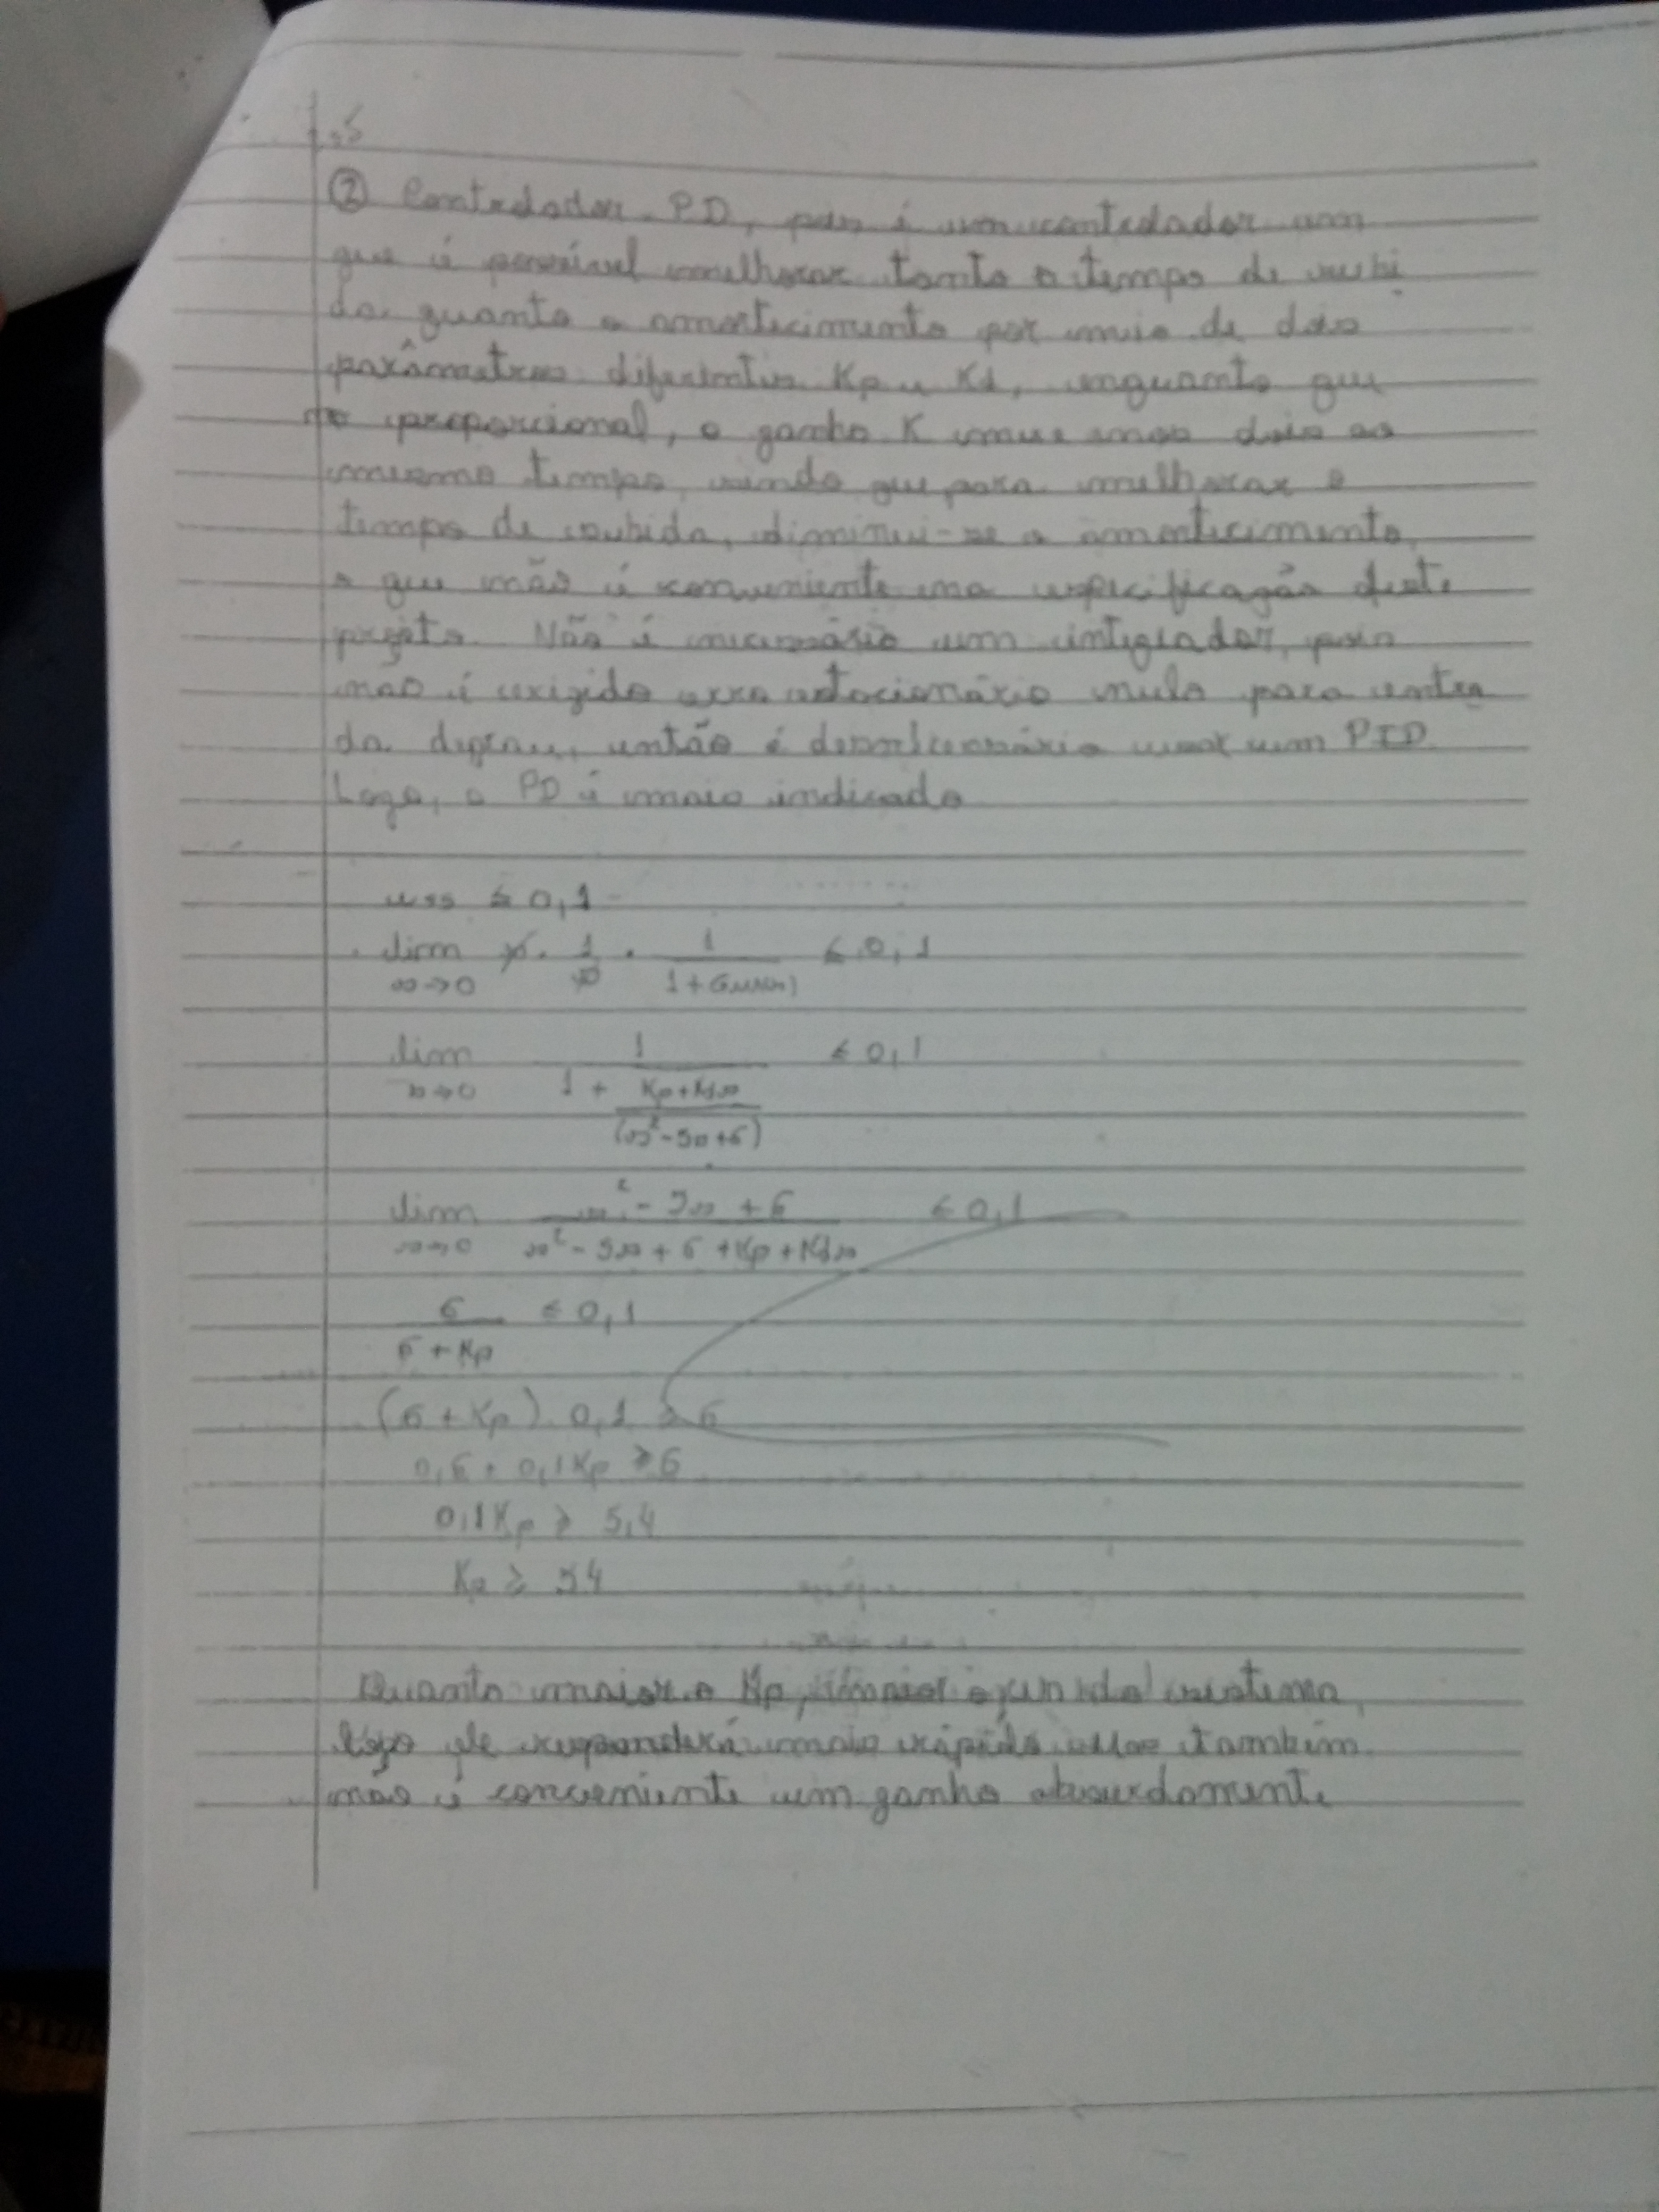 1,5
② Controlador PD, pois é um controlador em
que é possível melhorar tanto o tempo de subi
da quanto o amortecimento por meio de dois
parâmetros diferentes Kp e Kd, enquanto que
no proporcional, o ganho K move esses dois ao
mesmo tempo, sendo que para melhorar o
tempo de subida, diminui-se o amortecimento,
o que não é conveniente na especificação deste
projeto. Não é necessário um integrador, pois
não é exigido erro estacionário nulo para entra
da degrau, então é desnecessário usar um PID.
Logo, o PD é mais indicado
ess ≤ 0,1
lim s . 1/s . 1/(1+G(s)) ≤ 0,1
s→0
lim 1/(1 + (Kp+Kds)/(s²-5s+6)) ≤ 0,1
s→0
lim (s²-5s+6)/(s²-5s+6+Kp+Kds) ≤ 0,1
s→0
6/(6+Kp) ≤ 0,1
(6+Kp) 0,1 ≥ 6
0,6 + 0,1Kp ≥ 6
0,1Kp ≥ 5,4
Kp ≥ 54
Quanto maior o Kp, do sistema,
logo ele responderá mais rápido mas também
não é conveniente um ganho absurdamente